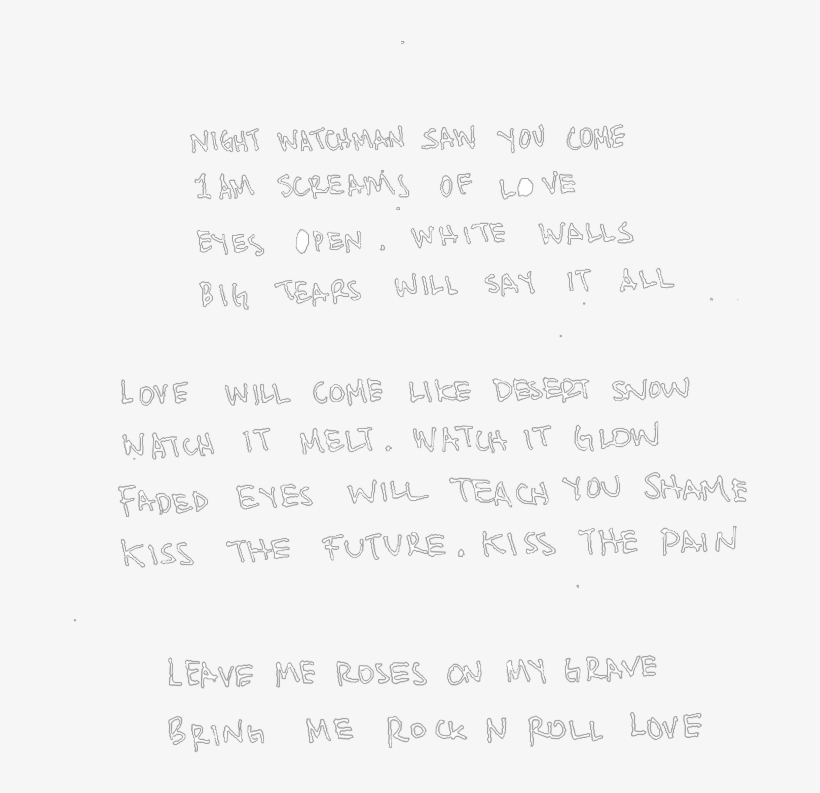 NIGHT WATCHMAN SAW YOU COME
1 AM SCREAMS OF LOVE
EYES OPEN. WHITE WALLS
BIG TEARS WILL SAY IT ALL
LOVE WILL COME LIKE DESERT SNOW
WATCH IT MELT. WATCH IT GLOW
FADED EYES WILL TEACH YOU SHAME
KISS THE FUTURE. KISS THE PAIN
LEAVE ME ROSES ON MY GRAVE
BRING ME ROCK N ROLL LOVE